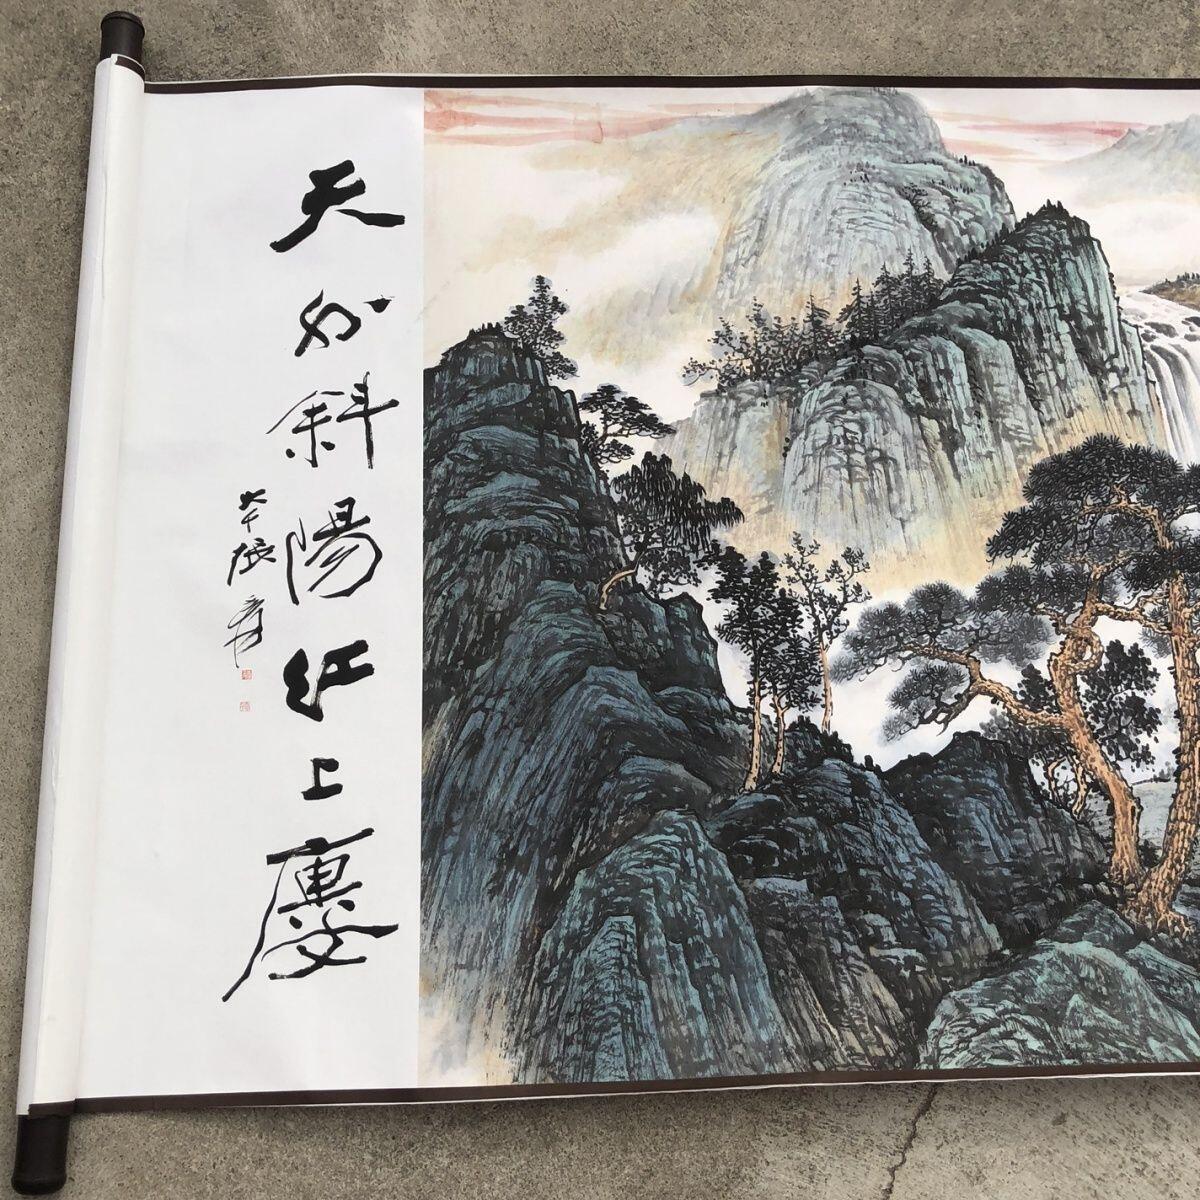 天外斜陽紅上樓
大千張爰